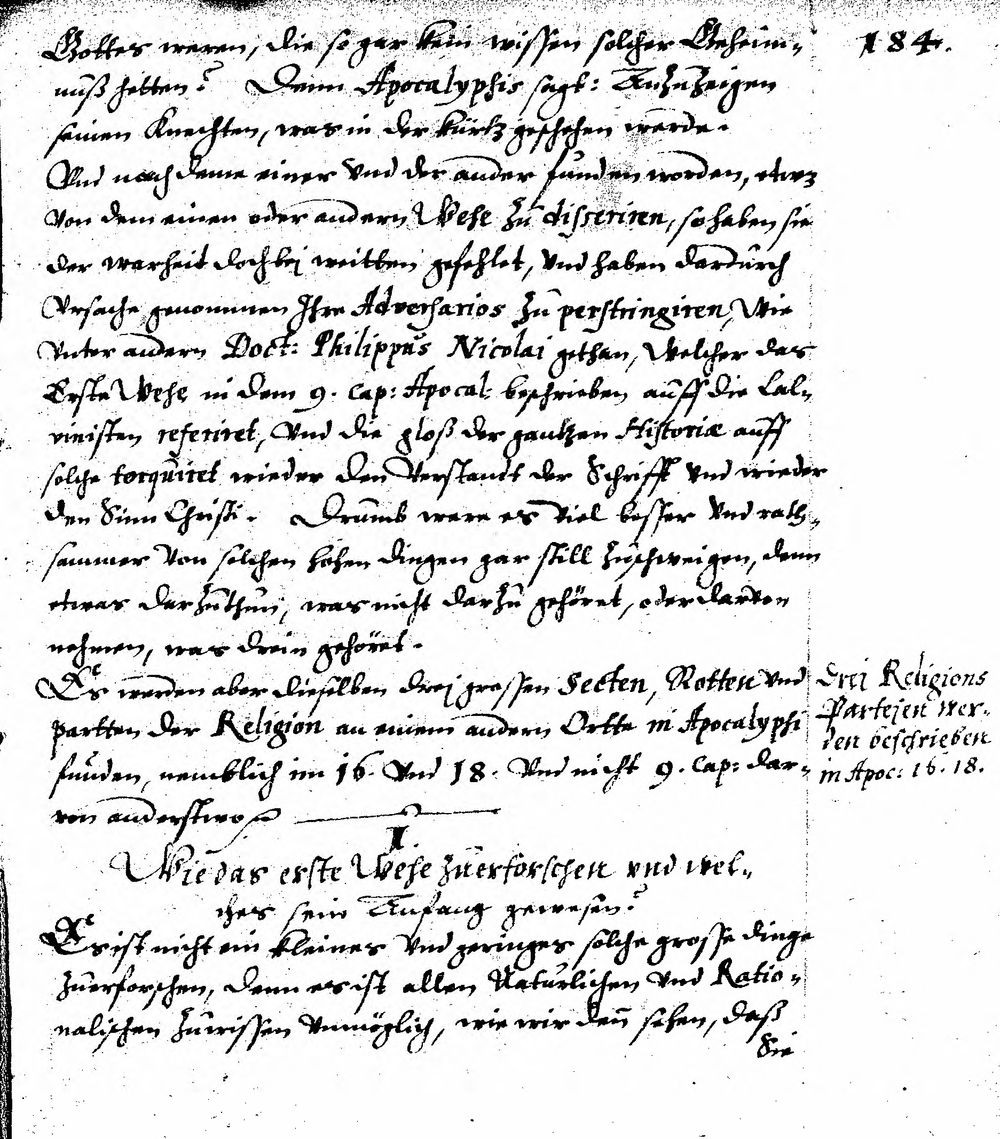 184.
Gottes weren, die so gar kein wissen solcher Geheim-
nuß hetten? Denn Apocalypsis sagt: Anzuzeigen
seinen Knechten, was in der kürtz geschehen werde.
Vnd nach deme einer vnd der ander funden worden, etwz
von dem einen oder andern Wehe zu disseriren, so haben sie
der warheit doch bej weitten gefehlet, vnd haben dardurch
Vrsache genommen Ihre Adversarios zu perstringiren, Wie
vnter andern Doct: Philippus Nicolai gethan, Welcher das
Erste Wehe in dem 9. Cap: Apocal: beschrieben auff die Cal-
vinisten referiret, Vnd die gloß der gantzen Historiæ auff
solche torquiret wieder den Verstandt der Schrifft vnd wieder
den Sinn Christi. Drumb were es viel besser vnd rath-
sammer von solchen hohen dingen gar still zuschweigen, denn
etwas darzuthun, was nicht darzu gehöret, oder darvon
nehmen, was drein gehöret.
Es werden aber dieselben drej grossen Secten, Rotten vnd
partten der Religion an einem andern Ortte in Apocalypsi
funden, nemblich im 16. Vnd 18. Vnd nicht 9. Cap: dar-
von anderstwo
Drei Religions
Partejen wer-
den beschrieben
in Apoc: 16. 18.
I
Wie das erste Wehe zuerforschen vnd wel-
ches sein Anfang gewesen?
Es ist nicht ein kleines vnd geringes solche grosse dinge
zuerforschen, denn es ist allen Naturlichen vnd Ratio-
nalischen zuwissen vnmöglich, wie wir den̄ sehen, daß
Sie